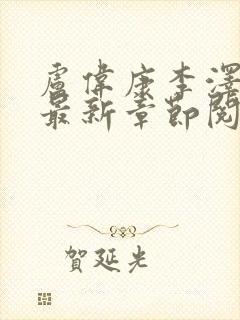 盧偉康李澤
最新章節閱
賀延光